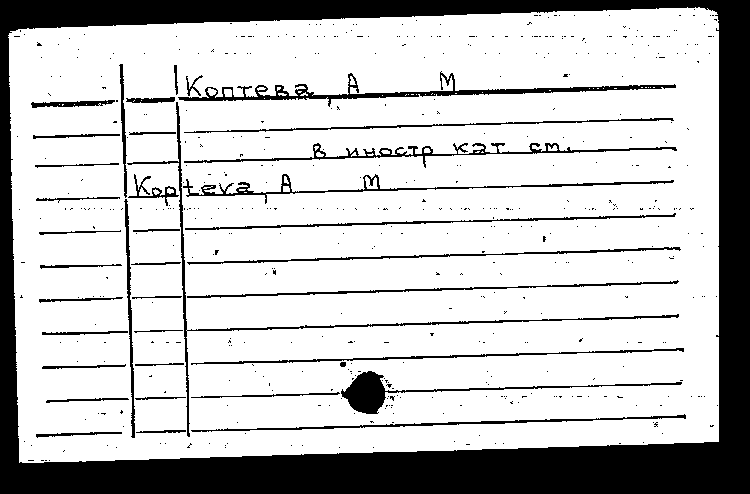 Коптева, А М
в иностр кат см.
Kopteva, A M